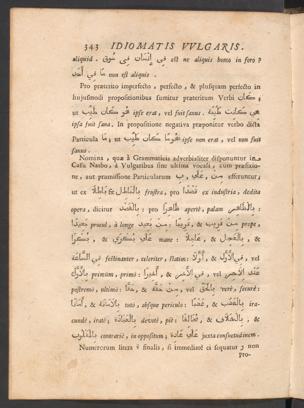 343 IDIOMATIS VVLGARIS.
aliquid. في إنسان في سوق est ne aliquis homo in foro?
ما في أحد non est aliquis.
Pro præterito imperfecto, perfecto, & plusquam perfecto in
hujusmodi propositionibus sumitur præteritum Verbi كان;
ut هو كان طيب ipse erat, vel fuit sanus. هي كانت طيبة
ipsa fuit sana. In propositione negativa præponitur verbo dicta
Particula ما; ut هو ما كان طيب ipse non erat, vel non fuit
sanus.
Nomina, quæ à Grammaticis adverbialiter disponuntur in
Casu Nasbo, à Vulgaribus sine ultima vocali, cum præfixio-
ne, aut præmissione Particularum من, على, ب efferuntur,
ut باطلا & بالباطل frustra, pro قصدا ex industria, dedita
opera, dicitur بالقصد; pro ظاهرا apertè, palam بالظاهر:
بعيدا procul, à longe من بعيد, قريبا; من قريب prope,
بكرا, & على بكري mane: عاجلا, & بالعجل, &
في الساعة festinanter, celeriter, statim: أولا, & في الأول, vel
بالأول primùm, primò: أخيرا, & في الأخر, vel عند الأخر
postremò, ultimò: حقا, & من حقه, vel بالحق verè, securè:
أمانا, & بالأمانة tutò, absque periculo: غضبا, & بالغضب ira-
cundè, iratè; بالعبادة devotè, piè: & بالخلاف, &
بالمقلوب contrariè, in oppositum; على عادة juxta consuetudinem.
Numerorum litera ة finalis, si immediatè ei sequatur و non
pro-